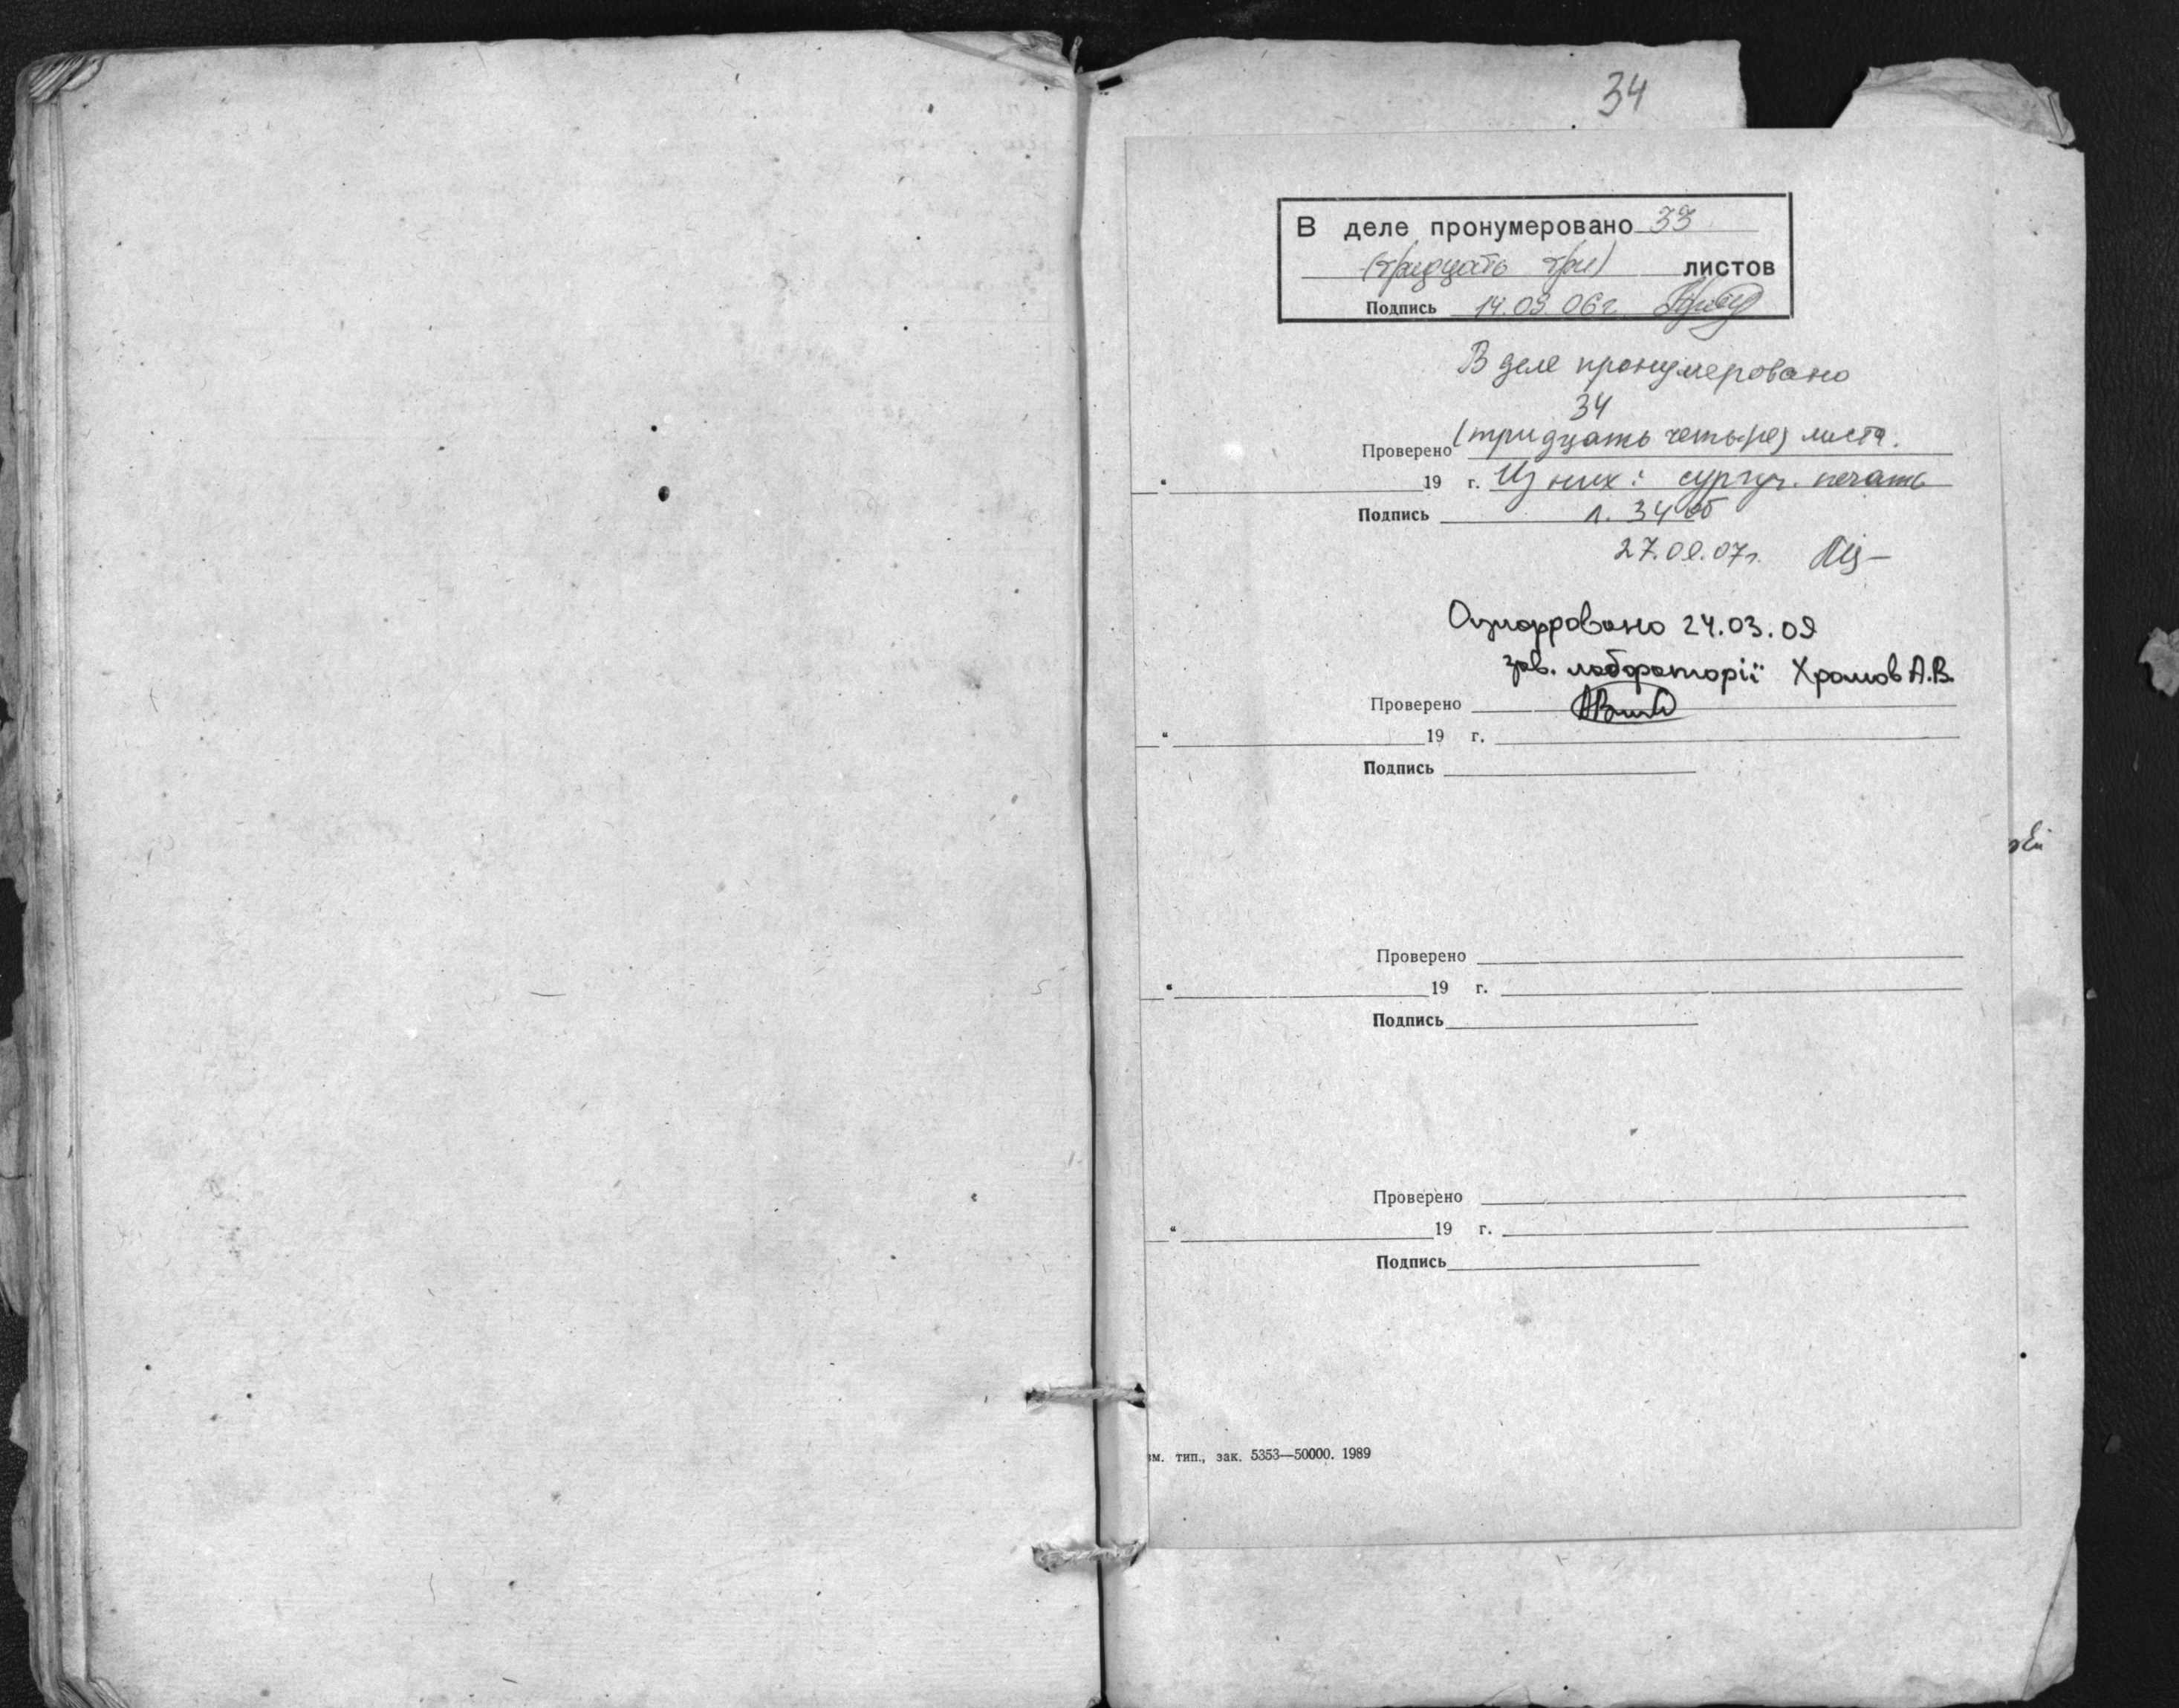 34
В деле пронумеровано 33
(тридцать три) листов
Подпись 14.03.06г.
В деле пронумеровано
34
Проверено (тридцать четыре) листа.
“ 19 г. Из них: сургуч. печать
Подпись л. 34 об
27.08.07г.
Оцифровано 24.03.09
зав. лабораторії Хромов А.В.
Проверено
“ 19 г.
Подпись
Проверено
“ 19 г.
Подпись
Проверено
“ 19 г.
Подпись
зм. тип., зак. 5353—50000. 1989